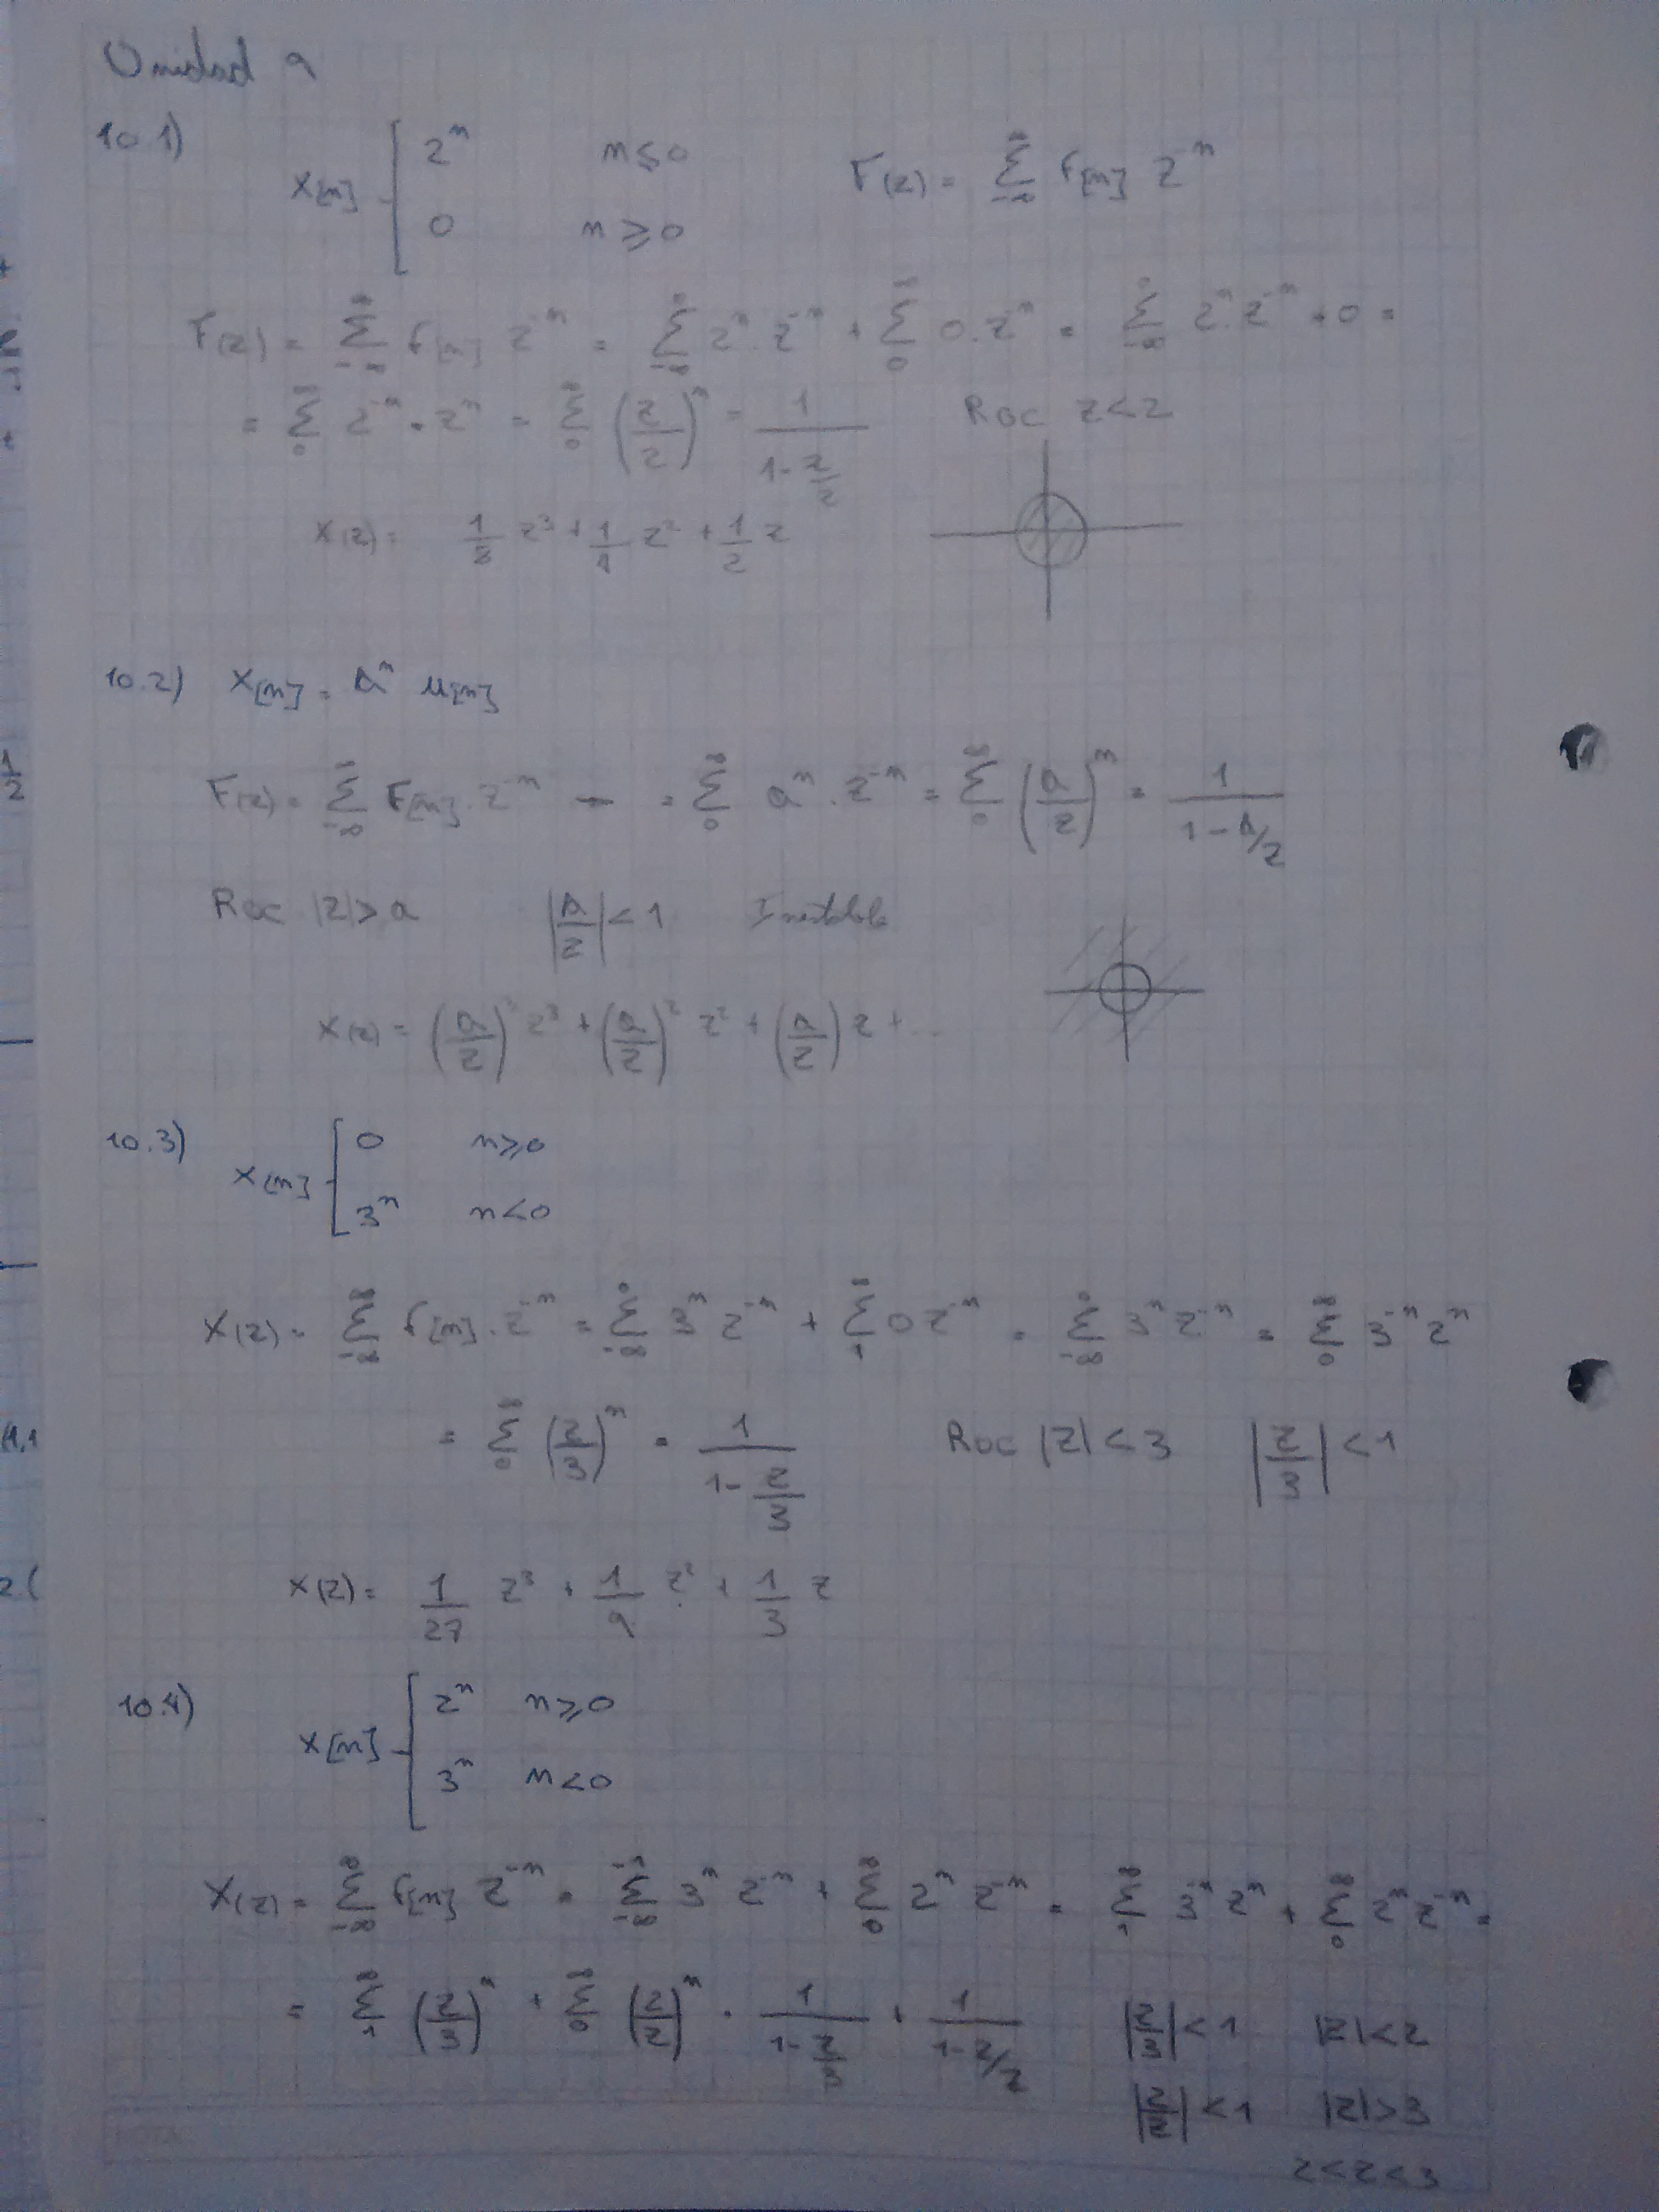 Unidad 9
10.1) x[n] { 2^n n≤0
0 n≥0
F(z) = Σ_{-∞}^{∞} f[n] z^{-n}
F(z) = Σ_{-∞}^{∞} f[n] z^{-n} = Σ_{-∞}^{0} 2^n . z^{-n} + Σ_{0}^{∞} 0 . z^{-n} = Σ_{-∞}^{0} 2^n . z^{-n} + 0 =
= Σ_{0}^{∞} 2^{-n} . z^n = Σ_{0}^{∞} (z/2)^n = 1/(1 - z/2) Roc z<2
x(z) = 1/8 z^3 + 1/4 z^2 + 1/2 z
10.2) x[n] = a^n u[n]
F(z) = Σ_{-∞}^{∞} F[n] . z^{-n} = Σ_{0}^{∞} a^n . z^{-n} = Σ_{0}^{∞} (a/z)^n = 1/(1 - a/z)
Roc |z|>a |a/z|<1 Inestable
x(z) = (a/z)^3 z^3 + (a/z)^2 z^2 + (a/z) z + ...
10.3) x[n] { 0 n≥0
3^n n<0
X(z) = Σ_{-∞}^{∞} f[n] . z^{-n} = Σ_{-∞}^{0} 3^n z^{-n} + Σ_{1}^{∞} 0 z^{-n} = Σ_{-∞}^{0} 3^n z^{-n} = Σ_{0}^{∞} 3^{-n} z^n
= Σ_{0}^{∞} (z/3)^n = 1/(1 - z/3) Roc |z|<3 |z/3|<1
x(z) = 1/27 z^3 + 1/9 z^2 + 1/3 z
10.4) x[n] { 2^n n≥0
3^n n<0
X(z) = Σ_{-∞}^{∞} f[n] z^{-n} = Σ_{-∞}^{-1} 3^n z^{-n} + Σ_{0}^{∞} 2^n z^{-n} = Σ_{1}^{∞} 3^{-n} z^n + Σ_{0}^{∞} 2^n z^{-n} =
= Σ_{1}^{∞} (z/3)^n + Σ_{0}^{∞} (2/z)^n = 1/(1 - z/3) + 1/(1 - 2/z) |z/3|<1 |z|<2
|2/z|<1 |z|>3
2<z<3
NOTA
1/2